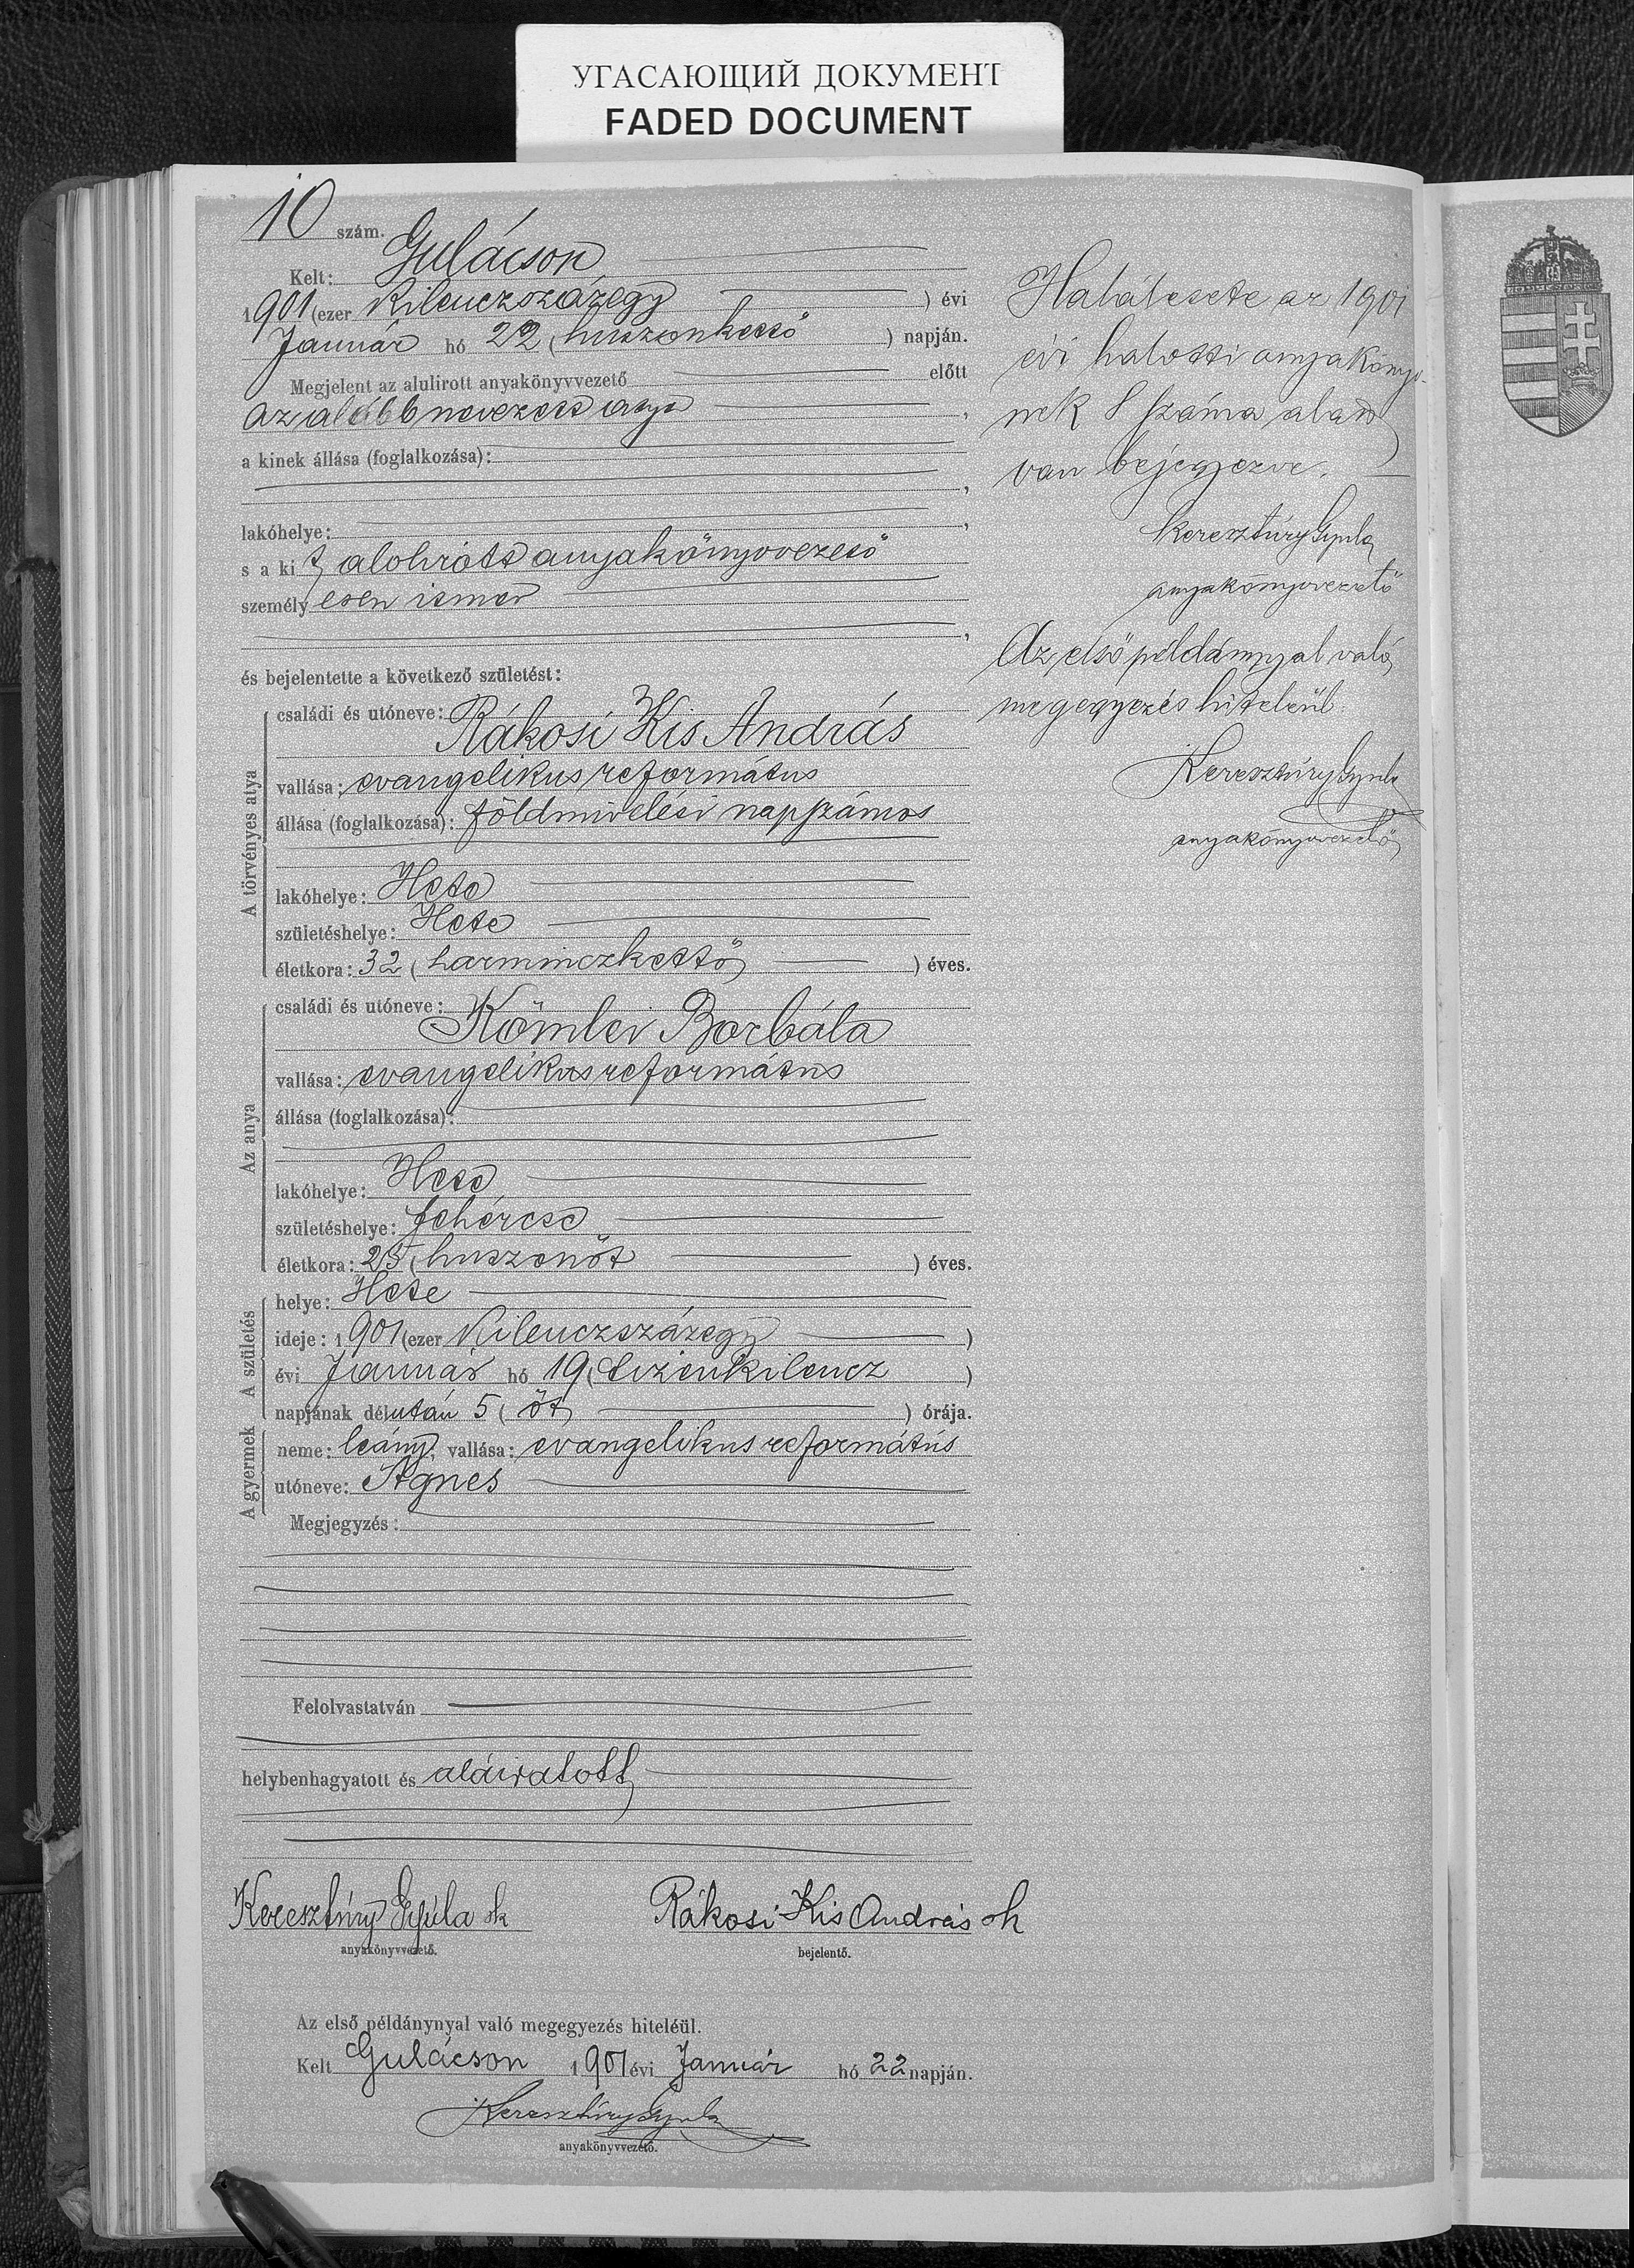 УГАСАЮЩИЙ ДОКУМЕНТ
FADED DOCUMENT
10 szám.
Kelt: Gulácson
1901 (ezer kilenczszázegy ) évi
Január hó 22 (huszonkettő ) napján.
Megjelent az alulirott anyakönyvvezető előtt
az alább nevezett atya ,
a kinek állása (foglalkozása):
,
lakóhelye: ,
s a kit alolirott anyakönyvvezető
személyesen ismer
,
és bejelentette a következő születést:
A törvényes atya
családi és utóneve:
Rákosi Kis András
vallása: evangelikus református
állása (foglalkozása): földmivelési napszámos
lakóhelye: Hete
születéshelye: Hete
életkora: 32 (harminczkettő ) éves.
Az anya
családi és utóneve:
Kömlei Borbála
vallása: evangelikus református
állása (foglalkozása):
lakóhelye: Hete
születéshelye: Fehércse
életkora: 25 (huszonöt ) éves.
A születés
helye: Hete
ideje: 1901 (ezer kilenczszázegy )
évi Január hó 19 (tizenkilencz )
napjának délután 5 (öt ) órája.
A gyermek
neme: leány, vallása: evangelikus református
utóneve: Ágnes
Megjegyzés:
Felolvastatván
helybenhagyatott és aláiratott
Keresztúry Gyula sk
anyakönyvvezető.
Rákosi Kis András sk
bejelentő.
Az első példánynyal való megegyezés hiteléül.
Kelt Gulácson 1901 évi Január hó 22 napján.
Keresztúry Gyula
anyakönyvvezető.
Halálesete az 1901
évi halotti anyakönyv-
nek 8 száma alatt
van bejegyezve.
Keresztúry Gyula
anyakönyvvezető
Az első példánnyal való
megegyezés hiteléül
Keresztúry Gyula
anyakönyvvezető